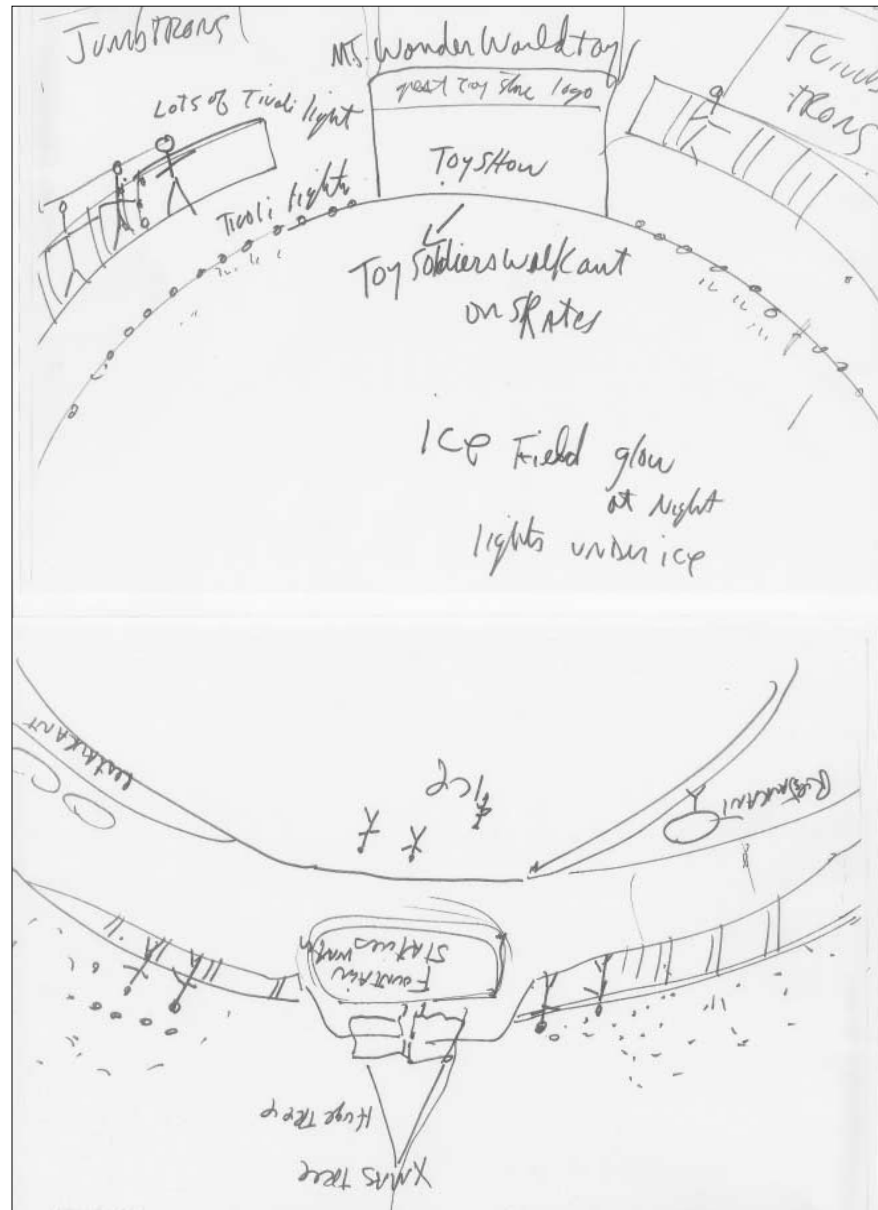 JUMBTRONS
MJ. WonderWorldtoy
great toy store logo
LOTS of Tivoli light
TOYSHOW
Tivoli lights
TRONS
Toy Soldiers walk out
ON SKATES
ICE Field glow
at Night
lights UNDER ICE
RESTAURANT
ICE
RESTAURANT
Fountain
Statues
Huge TREE
XMAS TREE